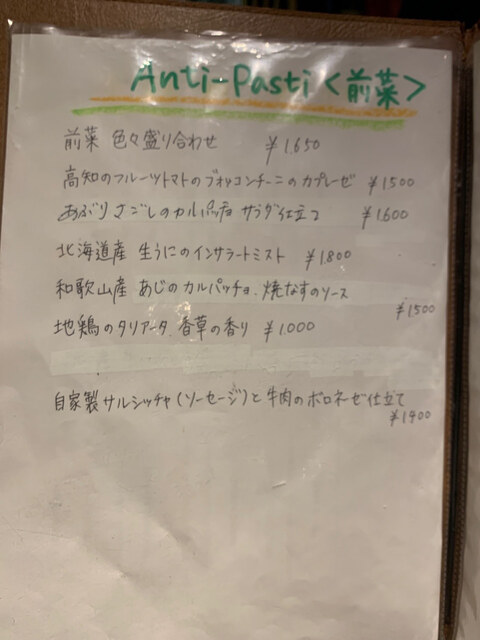 Anti-Pasti <前菜>
前菜 色々盛り合わせ ¥1.650
高知のフルーツトマトのブォッコンチーニのカプレーゼ ¥1500
あぶりさごしのカルパッチョ サラダ仕立て ¥1.600
北海道産 生うにのインサラートミスト ¥1.800
和歌山産 あじのカルパッチョ.焼なすのソース
¥1500
地鶏のタリアータ 香草の香り ¥1.000
自家製サルシッチャ(ソーセージ)と牛肉のボロネーゼ仕立て
¥1400